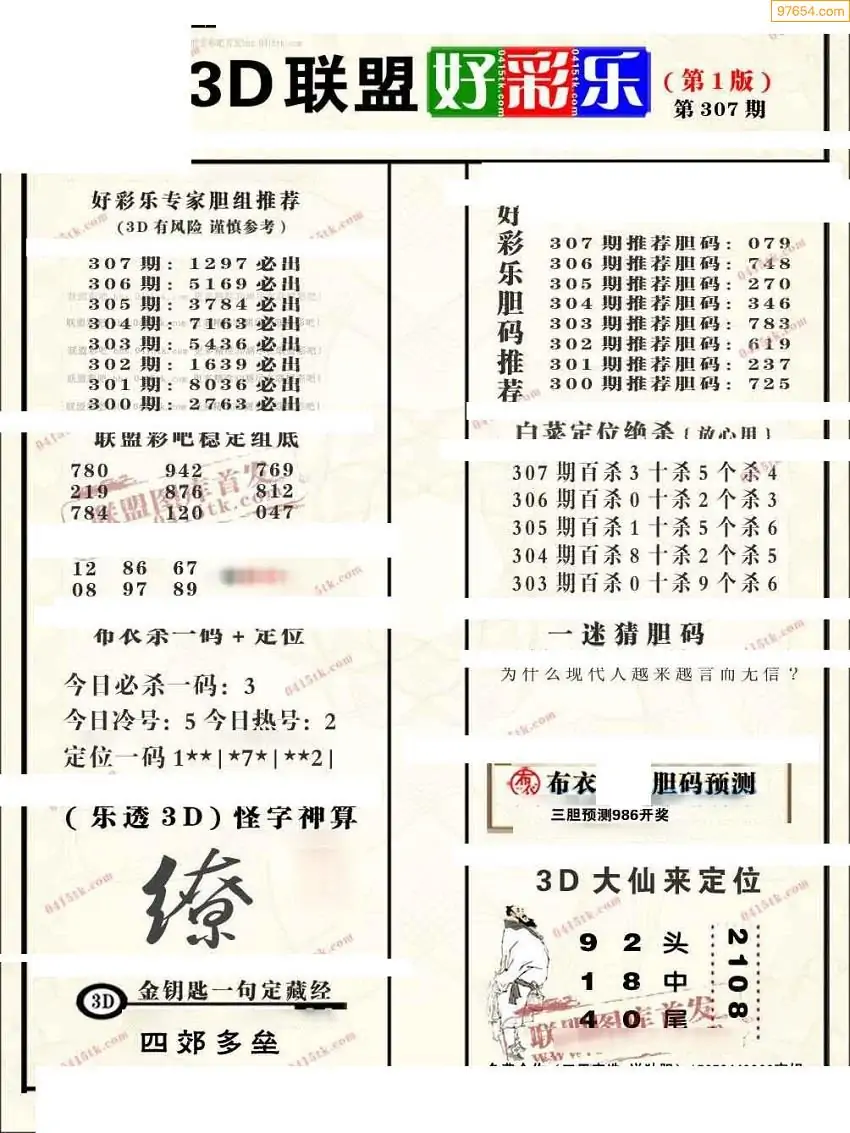 97654.com
3D联盟好彩乐(第1版)
第307期
好彩乐专家胆组推荐
(3D有风险 谨慎参考)
307期:1297必出
306期:5169必出
305期:3784必出
304期:7163必出
303期:5436必出
302期:1639必出
301期:8036必出
300期:2763必出
联盟彩吧稳定组底
780 942 769
219 876 812
784 120 047
12 86 67
08 97 89
布衣杀一码+定位
今日必杀一码:3
今日冷号:5 今日热号:2
定位一码1**|*7*|**2|
(乐透3D)怪字神算
缭
3D 金钥匙一句定藏经
四郊多垒
好彩乐胆码推荐
307期推荐胆码:079
306期推荐胆码:748
305期推荐胆码:270
304期推荐胆码:346
303期推荐胆码:783
302期推荐胆码:619
301期推荐胆码:237
300期推荐胆码:725
白菜定位绝杀{放心用}
307期百杀3十杀5个杀4
306期百杀0十杀2个杀3
305期百杀1十杀5个杀6
304期百杀8十杀2个杀5
303期百杀0十杀9个杀6
一迷猜胆码
为什么现代人越来越言而无信?
布衣 胆码预测
三胆预测986开奖
3D大仙来定位
9 2 头
1 8 中
4 0 尾
2108
联盟图库首发
0415tk.com